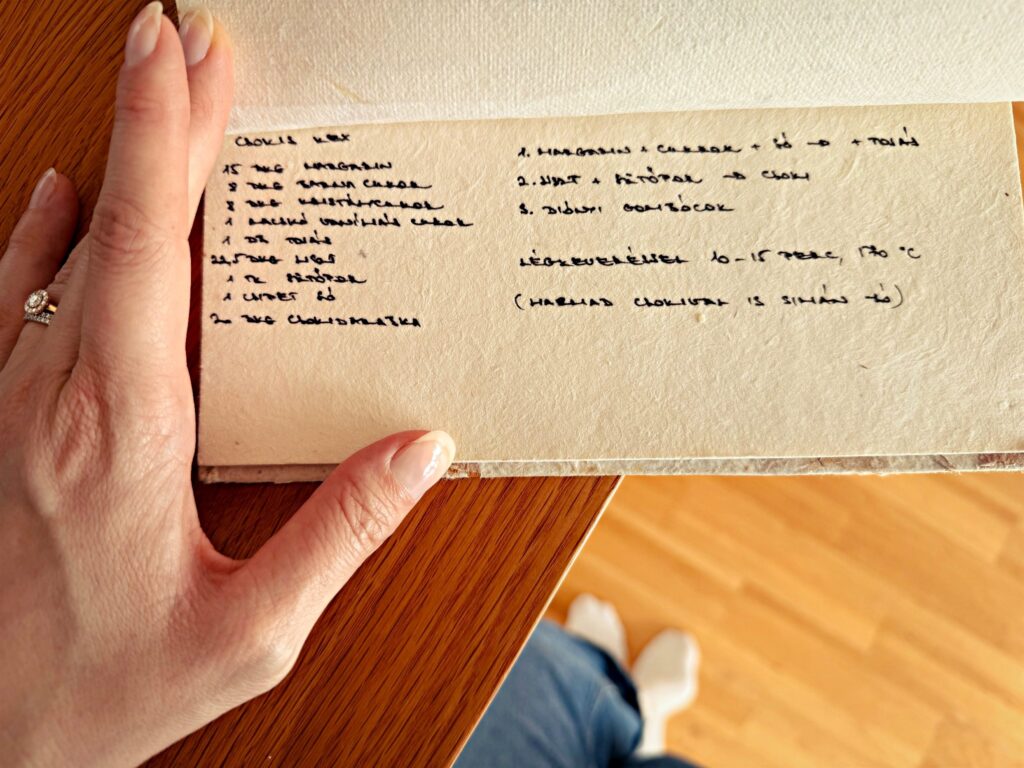 CSOKIS KEX
15 DKG MARGARIN
8 DKG BARNA CUKOR
8 DKG KRISTÁLYCUKOR
1 ZACSKÓ VANÍLIÁS CUKOR
1 DB TOJÁS
22,5 DKG LISZT
1 TK SÜTŐPOR
1 CSIPET SÓ
20 DKG CSOKIDARABKA
1. MARGARIN + CUKROK + SÓ → + TOJÁS
2. LISZT + SÜTŐPOR → CSOKI
3. DIÓNYI GOMBÓCOK
LÉGKEVERÉSSEL 10-15 PERC, 170 °C
(HARMAD CSOKIVAL IS SIMÁN JÓ)